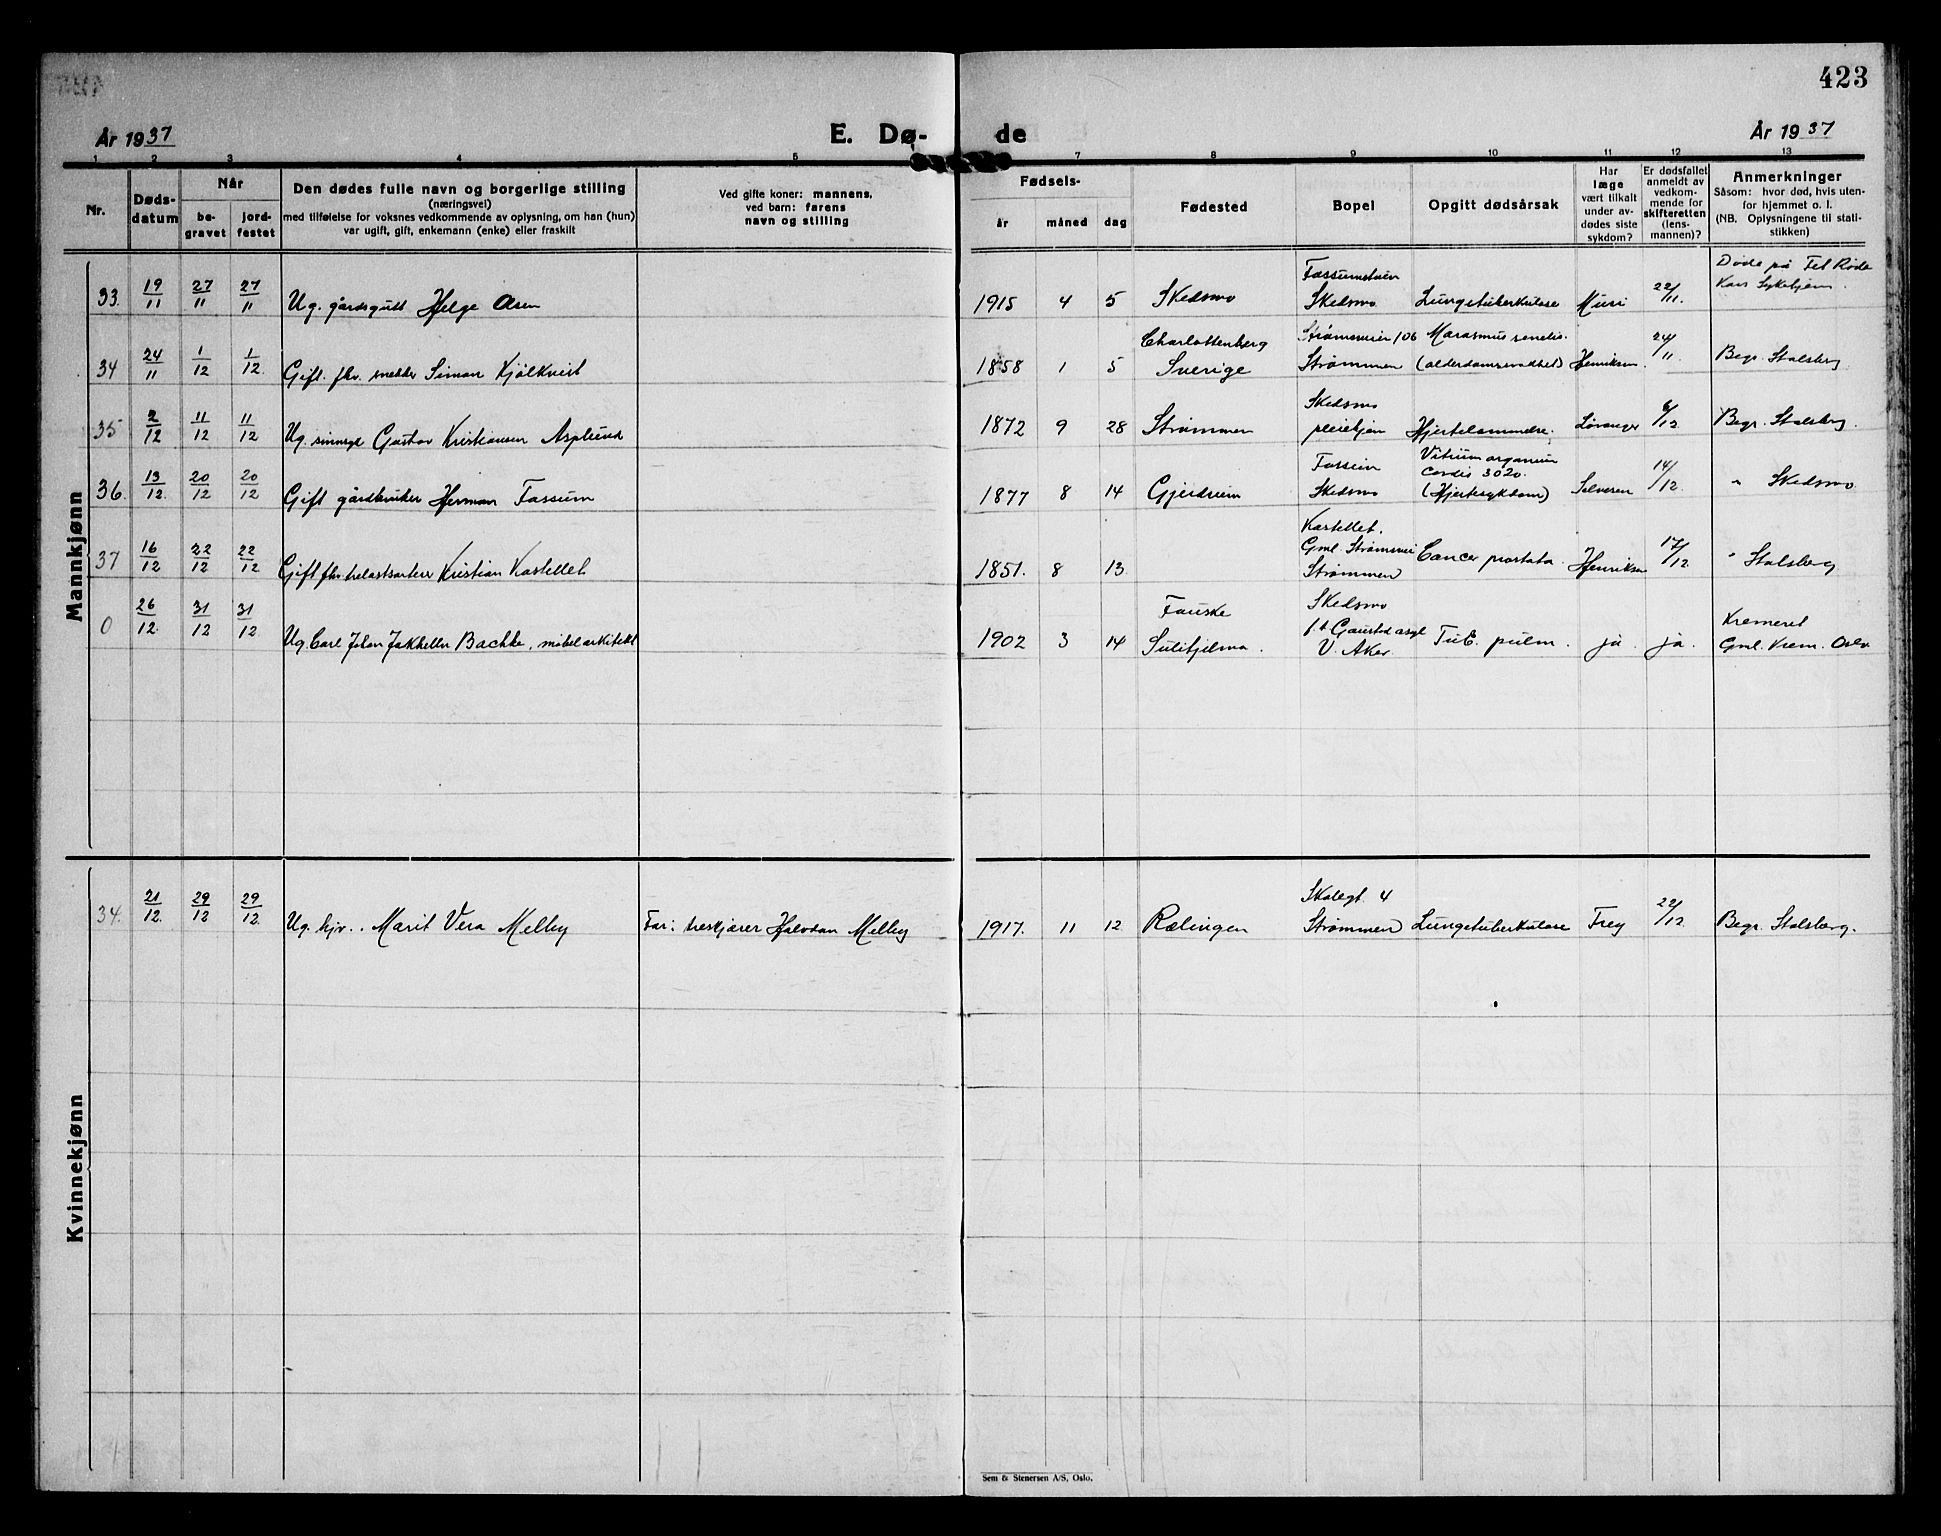 423
År 1937
E. Dø-de
År 1937
1 2 3 4 5 7 8 9 10 11 12 13
Nr.
Døds-
datum
Når
be-
gravet
jord-
festet
Den dødes fulle navn og borgerlige stilling
(næringsvei)
med tilføielse for voksnes vedkommende av oplysning, om han (hun)
var ugift, gift, enkemann (enke) eller fraskilt
Ved gifte koner: mannens,
ved barn: farens
navn og stilling
Fødsels-
år måned dag
Fødested
Bopel
Opgitt dødsårsak
Har
læge
vært tilkalt
under av-
dødes siste
sykdom?
Er dødsfallet
anmeldt av
vedkom-
mende for
skifteretten
(lens-
mannen)?
Anmerkninger
Såsom: hvor død, hvis uten-
for hjemmet o. l.
(NB. Oplysningene til stati-
stikken)
Mannkjønn
33. 19/11 27/11 27/11 Ug. gårdsgutt Helge Olsen 1915 4 5 Skedsmo
Skedsmo Lungetuberkulose Muri 22/11. Døde på Fet Røde
Kors Sykehjem.
34 24/11 1/12 1/12. Gift. fhv. smed Simon Kjölkvist 1858 1 5 Charlottenberg
Sverige
Strømsveien 106
Strømmen
Marasmus senilis.
(alderdomssvakhet) Henriksen. 24/11. Begr. Stalsberg
35 2/12 11/12 11/12 Ug. sinnsyk Gustav Kristiansen Asplund 1872 9 28 Strømmen
Skedsmo
pleiehjem Hjertelammelse. Løvanger 6/12. Begr. Stalsberg.
36. 13/12. 20/12 20/12 Gift gårdbruker Herman Fossum 1877 8 14 Gjerdrum
Fossum
Skedsmo
Vitium organicum
cordis 3020.
(Hjertesykdom) Salvesen 14/12. " Skedsmo
37 16/12 22/12 22/12. Gift fhv. Kristian Kastellet 1851. 8 13.
Kastellet.
Gml. Strømsvei
Strømmen
Cancer prostata. Henriksen 17/12. " Stalsberg
0 26/12. 31/12 31/12 Ug. Carl Johan Jakhelln Bachke, møbelarkitekt 1902 3 14 Fauske
Sulitjelma.
Skedsmo
f.t. Gaustad asyl
V. Aker.
Tub. pulm. ja. ja.
Kremeret
Gml. Krem. Oslo
Kvinnekjønn
34. 21/12. 29/12 29/12. Ug. hjv. Marit Vera Melby Far: treskjærer Halvdan Melby 1917. 11 12 Rælingen
Skolegt 4
Strømmen Lungetuberkulose Frey 22/12. Begr. Stalsberg.
Sem & Stenersen A/S, Oslo.